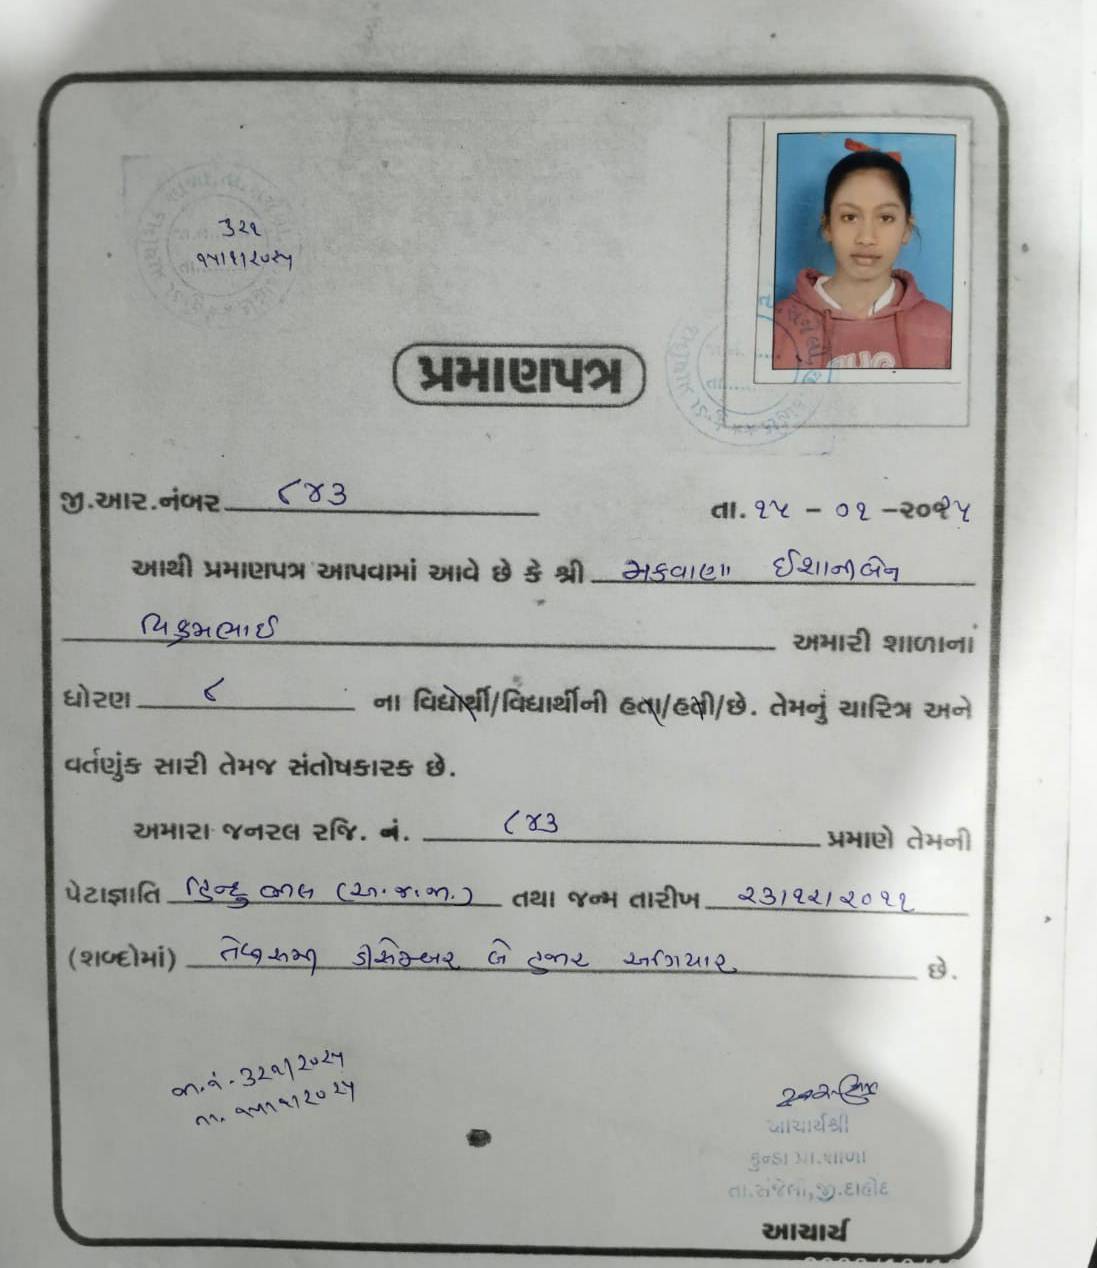 ૩૨૧
૧૫/૧/૨૦૨૫
પ્રમાણપત્ર
જી.આર.નંબર ૮૪૩
તા. ૧૫ - ૦૧ -૨૦૨૫
આથી પ્રમાણપત્ર આપવામાં આવે છે કે શ્રી મકવાણા ઈશાનીબેન
વિક્રમભાઈ અમારી શાળાનાં
ધોરણ ૮ ના વિદ્યાર્થી/વિદ્યાર્થીની હતા/હતી/છે. તેમનું ચારિત્ર અને
વર્તણુંક સારી તેમજ સંતોષકારક છે.
અમારા જનરલ રજિ. નં. ૮૪૩ પ્રમાણે તેમની
પેટાજ્ઞાતિ હિન્દુ ભીલ (અ.જ.જા.) તથા જન્મ તારીખ ૨૩/૧૨/૨૦૧૧
(શબ્દોમાં) ત્રેવીસમી ડીસેમ્બર બે હજાર અગિયાર છે.
જા.નં. ૩૨૧/૨૦૨૫
તા. ૧૫/૧/૨૦૨૫
આચાર્યશ્રી
કુન્ડા પ્રા.શાળા
તા.સંજેલી,જી.દાહોદ
આચાર્ય